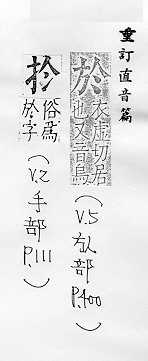 重訂直音篇
於衣虛切居也又音烏(V.5㫃部P.400)
扵俗爲於字(V.2手部P.111)